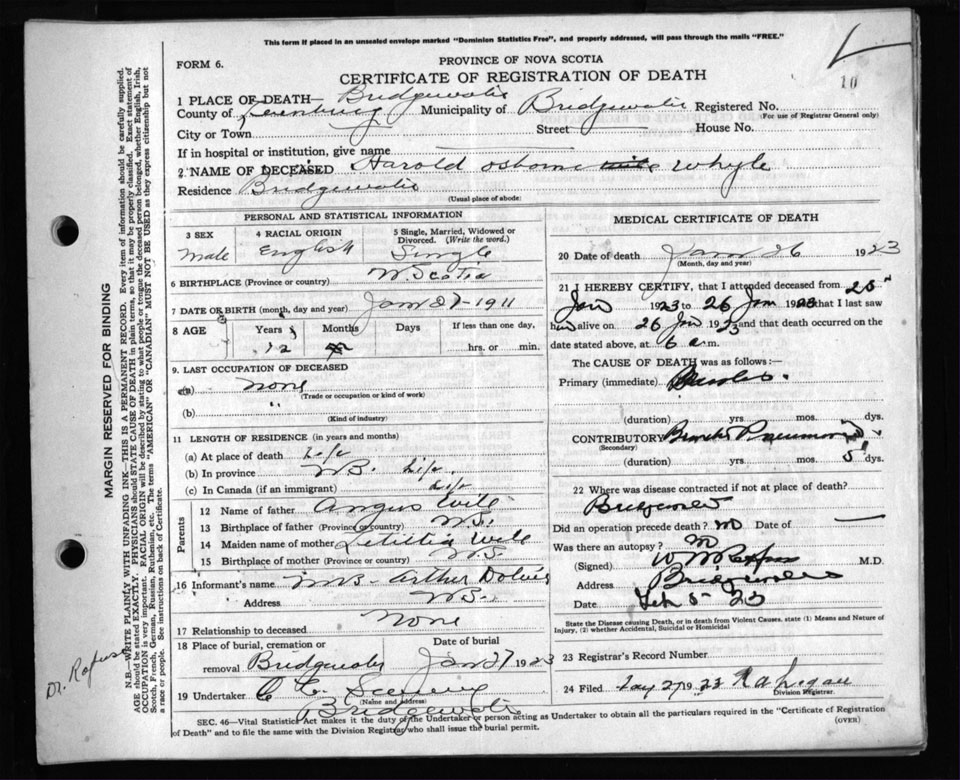 This form if placed in an unsealed envelope marked "Dominion Statistics Free", and properly addressed, will pass through the mails "FREE."
FORM 6.
PROVINCE OF NOVA SCOTIA
CERTIFICATE OF REGISTRATION OF DEATH
10
1 PLACE OF DEATH— Bridgewater
County of Lunenburg Municipality of Bridgewater Registered No.
(For use of Registrar General only)
City or Town Street House No.
If in hospital or institution, give name
2 NAME OF DECEASED Harold Osborne Whyle
Residence Bridgewater
(Usual place of abode)
PERSONAL AND STATISTICAL INFORMATION
3 SEX
Male
4 RACIAL ORIGIN
English
5 Single, Married, Widowed or Divorced. (Write the word.)
Single
6 BIRTHPLACE (Province or country) N Scotia
7 DATE OR BIRTH (month, day and year) Jan 27-1911
8 AGE Years Months Days If less than one day,
12 hrs. or min.
9. LAST OCCUPATION OF DECEASED
(a) None
(Trade or occupation or kind of work)
(b) "
(Kind of industry)
11 LENGTH OF RESIDENCE (in years and months)
(a) At place of death Life
(b) In province Life
(c) In Canada (if an immigrant) Life
Parents
12 Name of father Angus Wile
13 Birthplace of father (Province or country) N.S.
14 Maiden name of mother Letittia Wile
15 Birthplace of mother (Province or country) N.S.
16 Informant's name Arthur
Address N.S.
17 Relationship to deceased None
18 Place of burial, cremation or removal Date of burial
Bridgewater Jan 27 1923
19 Undertaker
(Name and address)
Bridgewater
MEDICAL CERTIFICATE OF DEATH
20 Date of death Jan 26 1923
(Month, day and year)
21 I HEREBY CERTIFY, that I attended deceased from 25
Jan 1923 to 26 Jan 1923 that I last saw
him alive on 26 Jan 1923 and that death occurred on
date stated above, at 6 a m.
The CAUSE OF DEATH was as follows:—
Primary (immediate) Measles.
(duration) yrs. mos. dys.
CONTRIBUTORY Broncho Pneumonia
(Secondary)
(duration) yrs. mos. 5 dys.
22 Where was disease contracted if not at place of death?
Bridgewater
Did an operation precede death? No Date of —
Was there an autopsy? No
(Signed) M.D.
Address Bridgewater
Date Feb 5 - 23
State the Disease causing Death, or in death from Violent Causes, state (1) Means and Nature of Injury, (2) whether Accidental, Suicidal or Homicidal
23 Registrar's Record Number
24 Filed 27 1923
Division Registrar.
SEC. 46—Vital Statistics Act makes it the duty of the Undertaker or person acting as Undertaker to obtain all the particulars required in the "Certificate of Registration
of Death" and to file the same with the Division Registrar who shall issue the burial permit.
(OVER)
MARGIN RESERVED FOR BINDING
N.B.—WRITE PLAINLY WITH UNFADING INK—THIS IS A PERMANENT RECORD. Every item of information should be carefully supplied.
AGE should be stated EXACTLY. PHYSICIANS should STATE CAUSE OF DEATH in plain terms, so that it may be properly classified. Exact statement of
OCCUPATION is very important. RACIAL ORIGIN will be described by stating to what people or tongue the deceased person belonged, whether English, Irish,
Scotch, French, German, Russian, Ruthenian, etc. The terms "AMERICAN" OR "CANADIAN" MUST NOT BE USED as they express citizenship but not
a race or people. See instructions on back of Certificate.
Dr. Rafuse